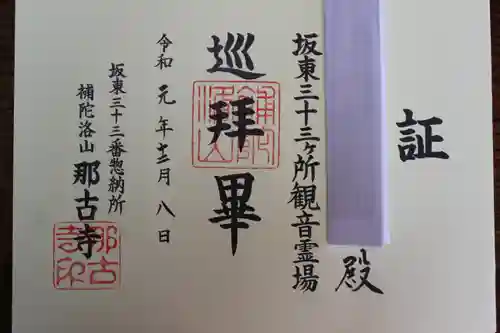 証
殿
坂東三十三ヶ所観音霊場
巡拜畢
令和元年十二月八日
坂東三十三番惣納所
補陀洛山那古寺
那古寺印